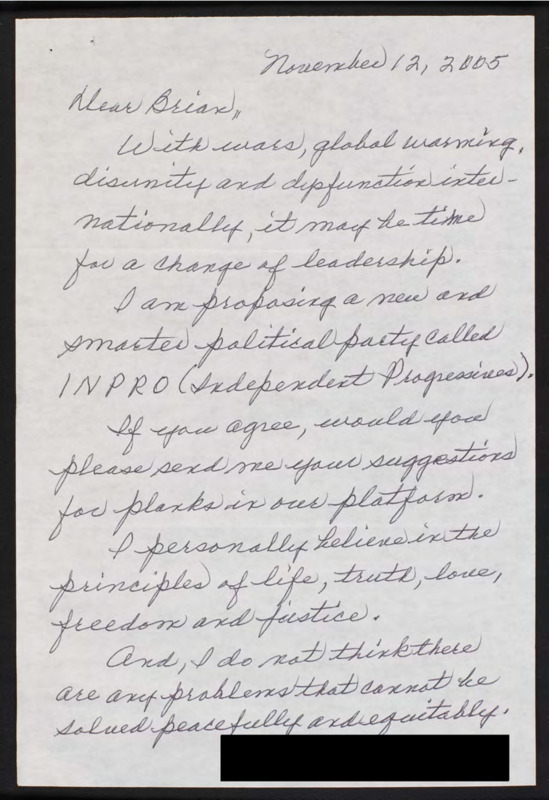 November 12, 2005
Dear Brian,,
With wars, global warming,
disunity and dysfunction inter-
nationally, it may be time
for a change of leadership.
I am proposing a new and
smarter political party called
INPRO (Independent Progressives).
If you agree, would you
please send me your suggestions
for planks in our platform.
I personally believe in the
principles of life, truth, love,
freedom and justice.
And, I do not think there
are any problems that cannot be
solved peacefully and equitably.